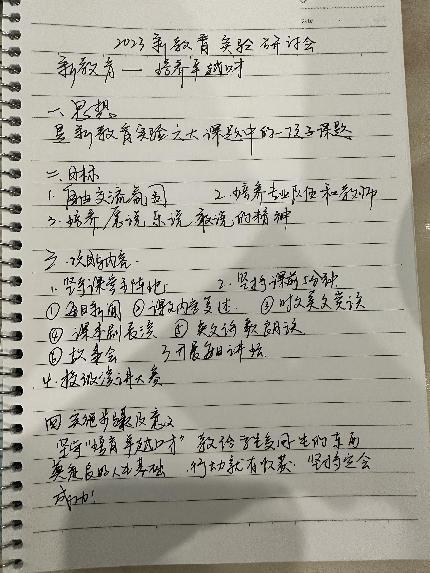 2023新教育实验研讨会
新教育——培养卓越口才
一、思想
是新教育实验六大课题中的一项子课题
二、目标
1. 自由交流氛围 2. 培养专业队伍和教师
3. 培养愿说、乐说、敢说的精神
三、内容
1. 坚持课堂主阵地 2. 坚持课前5分钟
①每日新闻 ②课文内容复述 ③时文美文诵读
④课本剧表演 ⑤英文诗歌朗读
⑥故事会 3. 开展每日讲坛
4. 演讲大赛
四、实施步骤及意义
坚持"培育卓越口才"教给学生受用一生的东西
奠定良好人生基础 行动就有收获 坚持定会
成功!